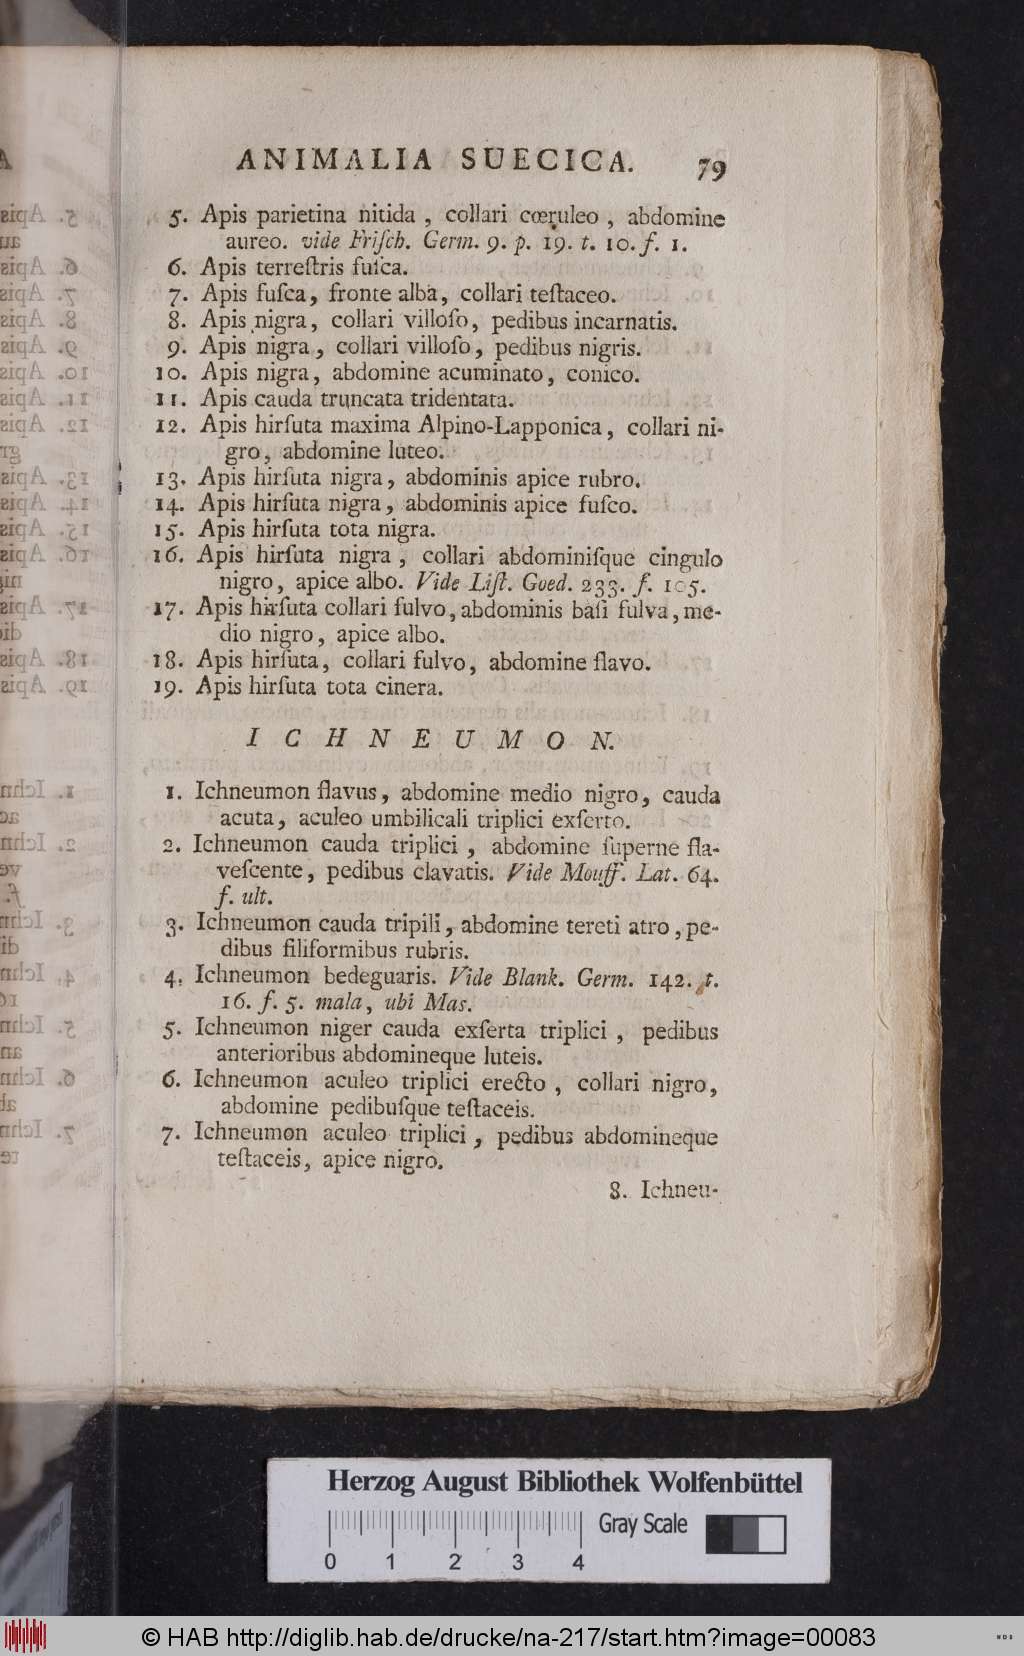 ANIMALIA SUECICA. 79
5. Apis parietina nitida , collari cœruleo , abdomine
aureo. vide Friſch. Germ. 9. p. 19. t. 10. f. 1.
6. Apis terreſtris fuſca.
7. Apis fuſca, fronte alba, collari teſtaceo.
8. Apis nigra, collari villoſo, pedibus incarnatis.
9. Apis nigra, collari villoſo, pedibus nigris.
10. Apis nigra, abdomine acuminato, conico.
11. Apis cauda truncata tridentata.
12. Apis hirſuta maxima Alpino-Lapponica, collari ni-
gro, abdomine luteo.
13. Apis hirſuta nigra, abdominis apice rubro.
14. Apis hirſuta nigra, abdominis apice fuſco.
15. Apis hirſuta tota nigra.
16. Apis hirſuta nigra , collari abdominiſque cingulo
nigro, apice albo. Vide Liſt. Goed. 233. f. 105.
17. Apis hirſuta collari fulvo, abdominis baſi fulva, me-
dio nigro, apice albo.
18. Apis hirſuta, collari fulvo, abdomine flavo.
19. Apis hirſuta tota cinera.
ICHNEUMON.
1. Ichneumon flavus, abdomine medio nigro, cauda
acuta, aculeo umbilicali triplici exſerto.
2. Ichneumon cauda triplici , abdomine ſuperne fla-
veſcente, pedibus clavatis. Vide Mouff. Lat. 64.
f. ult.
3. Ichneumon cauda tripili, abdomine tereti atro, pe-
dibus filiformibus rubris.
4. Ichneumon bedeguaris. Vide Blank. Germ. 142. t.
16. f. 5. mala, ubi Mas.
5. Ichneumon niger cauda exſerta triplici , pedibus
anterioribus abdomineque luteis.
6. Ichneumon aculeo triplici erecto , collari nigro,
abdomine pedibuſque teſtaceis.
7. Ichneumon aculeo triplici, pedibus abdomineque
teſtaceis, apice nigro.
8. Ichneu-
Herzog August Bibliothek Wolfenbüttel
Gray Scale
0 1 2 3 4
© HAB http://diglib.hab.de/drucke/na-217/start.htm?image=00083